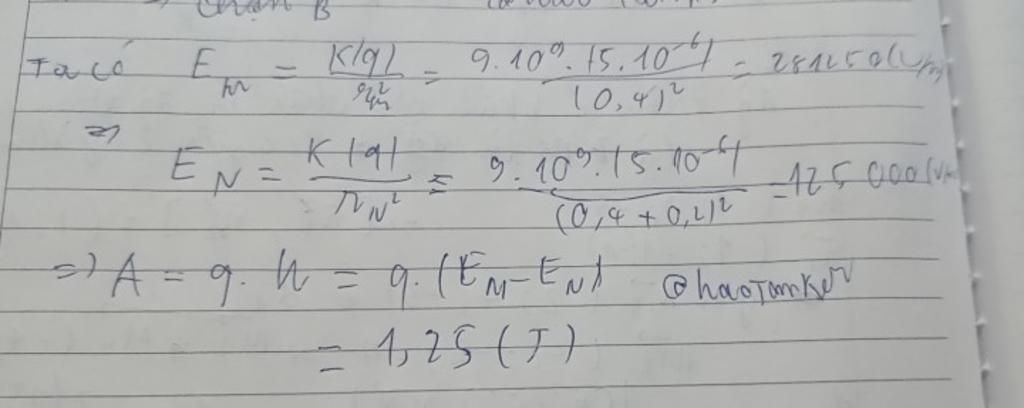 Chọn B
Ta có E_M = K|q| / r_M² = 9.10⁹.|5.10⁻⁶| / (0,4)² = 281250 (V/m)
=> E_N = K|q| / r_N² = 9.10⁹.|5.10⁻⁶| / (0,4 + 0,2)² = 125 000 (V/m)
=> A = q.U = q.(E_M - E_N) @haoTamKer
= 1,25 (J)